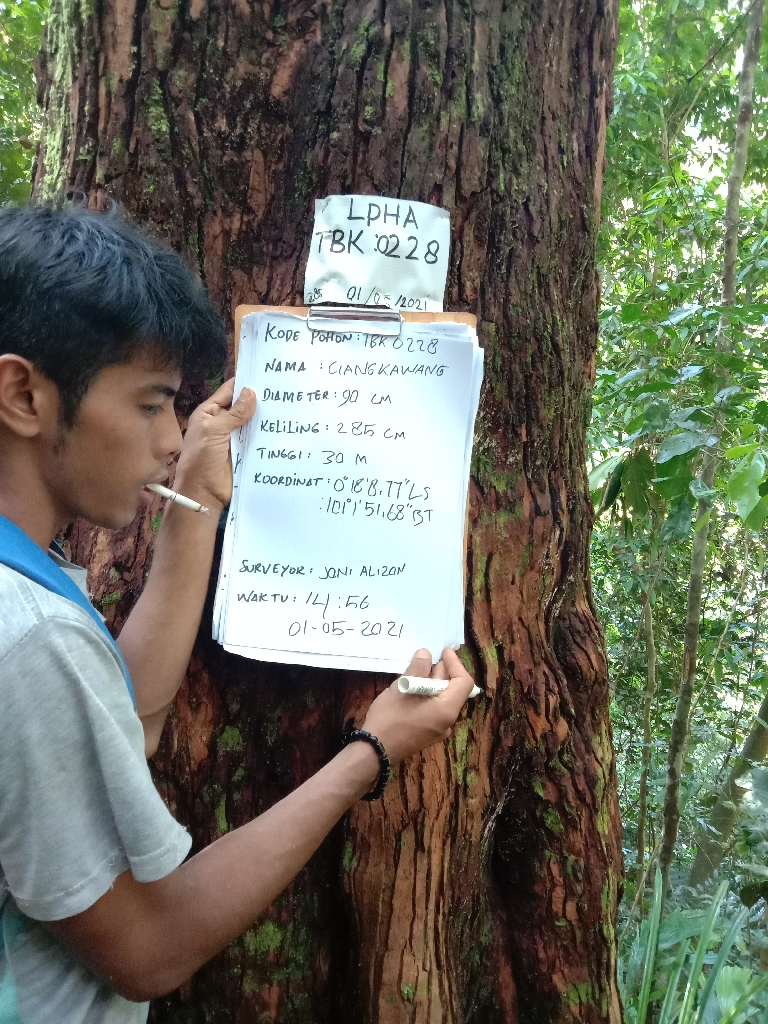 LPHA
TBK :0228
285 01/05/2021
KODE POHON : TBK 0228
NAMA : CIANGKAWANG
DIAMETER : 90 CM
KELILING : 285 CM
TINGGI : 30 M
KOORDINAT : 0°18'8,77"LS
:101°1'51,68"BT
SURVEYOR : JONI ALIZON
WAKTU : 14:56
01-05-2021